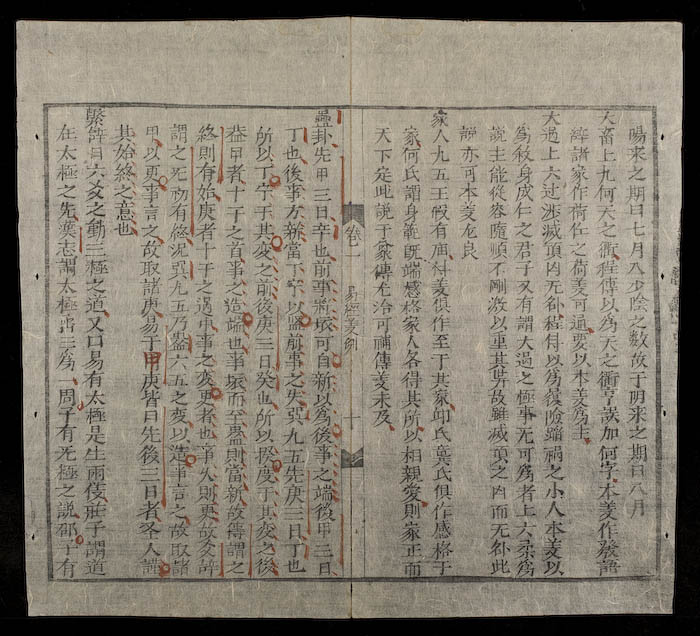 陽來之期曰七月八少陰之數故于陰來之期曰八月
大畜上九何天之衢程傳以為天之衢亨誤加何字本義作發語
辭諸家作荷任之荷義可通要以本義為主
大過上六過涉滅頂凶无咎程傳以為履險蹈禍之小人本義以
為殺身成仁之君子又有謂大過之極事无可為者上六柔為
說主能從容隨順不剛激以重其
故雖滅頂之凶而无咎此
說亦可本義尤良
家人九五王假有廟
本義俱作至于其家
氏
氏俱作感格于
家何氏謂身範既端感格家人各得其所以相親愛則家正而
天下定此說于象傳尤洽可補傳義未及
蠱卦先甲三日辛也前事將壞可自新以為後事之端後甲三日
丁也後事方新當丁寧以監前事之失巽九五先庚三日丁也
所以丁寧于其變之前後庚三日癸也所以揆度于其變之後
蓋甲者十干之首事之造端也事壞而至蠱則當新故傳謂之
終則有始庚者十干之過中事之變更者也事久則更故爻辭
謂之无初有終況巽九五乃蠱六五之變以造事言之故取諸
甲以更事言之故取諸庚易于甲庚皆曰先後三日者聖人謹
其始終之意也
繫辭曰六爻之動三極之道又曰易有太極是生兩儀莊子謂道
在太極之先漢志謂太極函三為一周子有无極之說邵子有
卷一
十